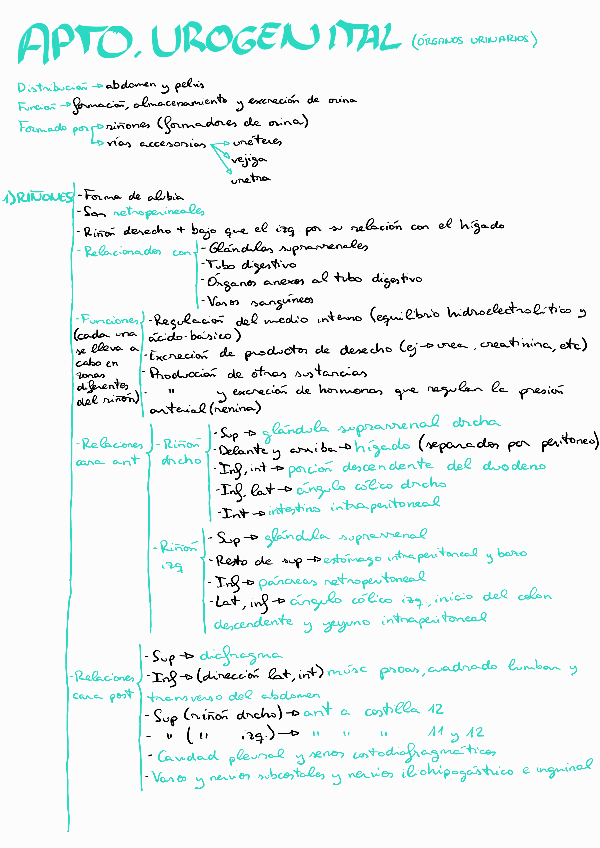 APTO. UROGENITAL (ÓRGANOS URINARIOS)
Distribución → abdomen y pelvis
Función → formación, almacenamiento y excreción de orina
Formado por → riñones (formadores de orina)
→ vías accesorias → uréteres
→ vejiga
→ uretra
1) RIÑONES
- Forma de alubia
- Son retroperineales
- Riñón derecho + bajo que el izq por su relación con el hígado
- Relacionados con
- Glándulas suprarrenales
- Tubo digestivo
- Órganos anexos al tubo digestivo
- Vasos sanguíneos
- Funciones
(cada una
se lleva a
cabo en
zonas
diferentes
del riñón)
- Regulación del medio interno (equilibrio hidroelectrolítico y
ácido-básico)
- Excreción de productos de desecho (ej → urea, creatinina, etc)
- Producción de otras sustancias
- " y excreción de hormonas que regulan la presión
arterial (renina)
- Relaciones
cara ant
- Riñón
drcho
- Sup → glándula suprarrenal drcha
- Delante y arriba → hígado (separados por peritoneo)
- Inf, int → porción descendente del duodeno
- Inf, lat → ángulo cólico drcho
- Int → intestino intraperitoneal
- Riñón
izq
- Sup → glándula suprarrenal
- Resto de sup → estómago intraperitoneal y bazo
- Inf → páncreas retroperitoneal
- Lat, inf → ángulo cólico izq, inicio del colon
descendente y yeyuno intraperitoneal
- Relaciones
cara post
- Sup → diafragma
- Inf → (dirección lat, int) músc psoas, cuadrado lumbar y
transverso del abdomen
- Sup (riñón drcho) → ant a costilla 12
- " ( " izq.) → " " " 11 y 12
- Cavidad pleural y senos costodiafragmáticos
- Vasos y nervios subcostales y nervios iliohipogástrico e inguinal